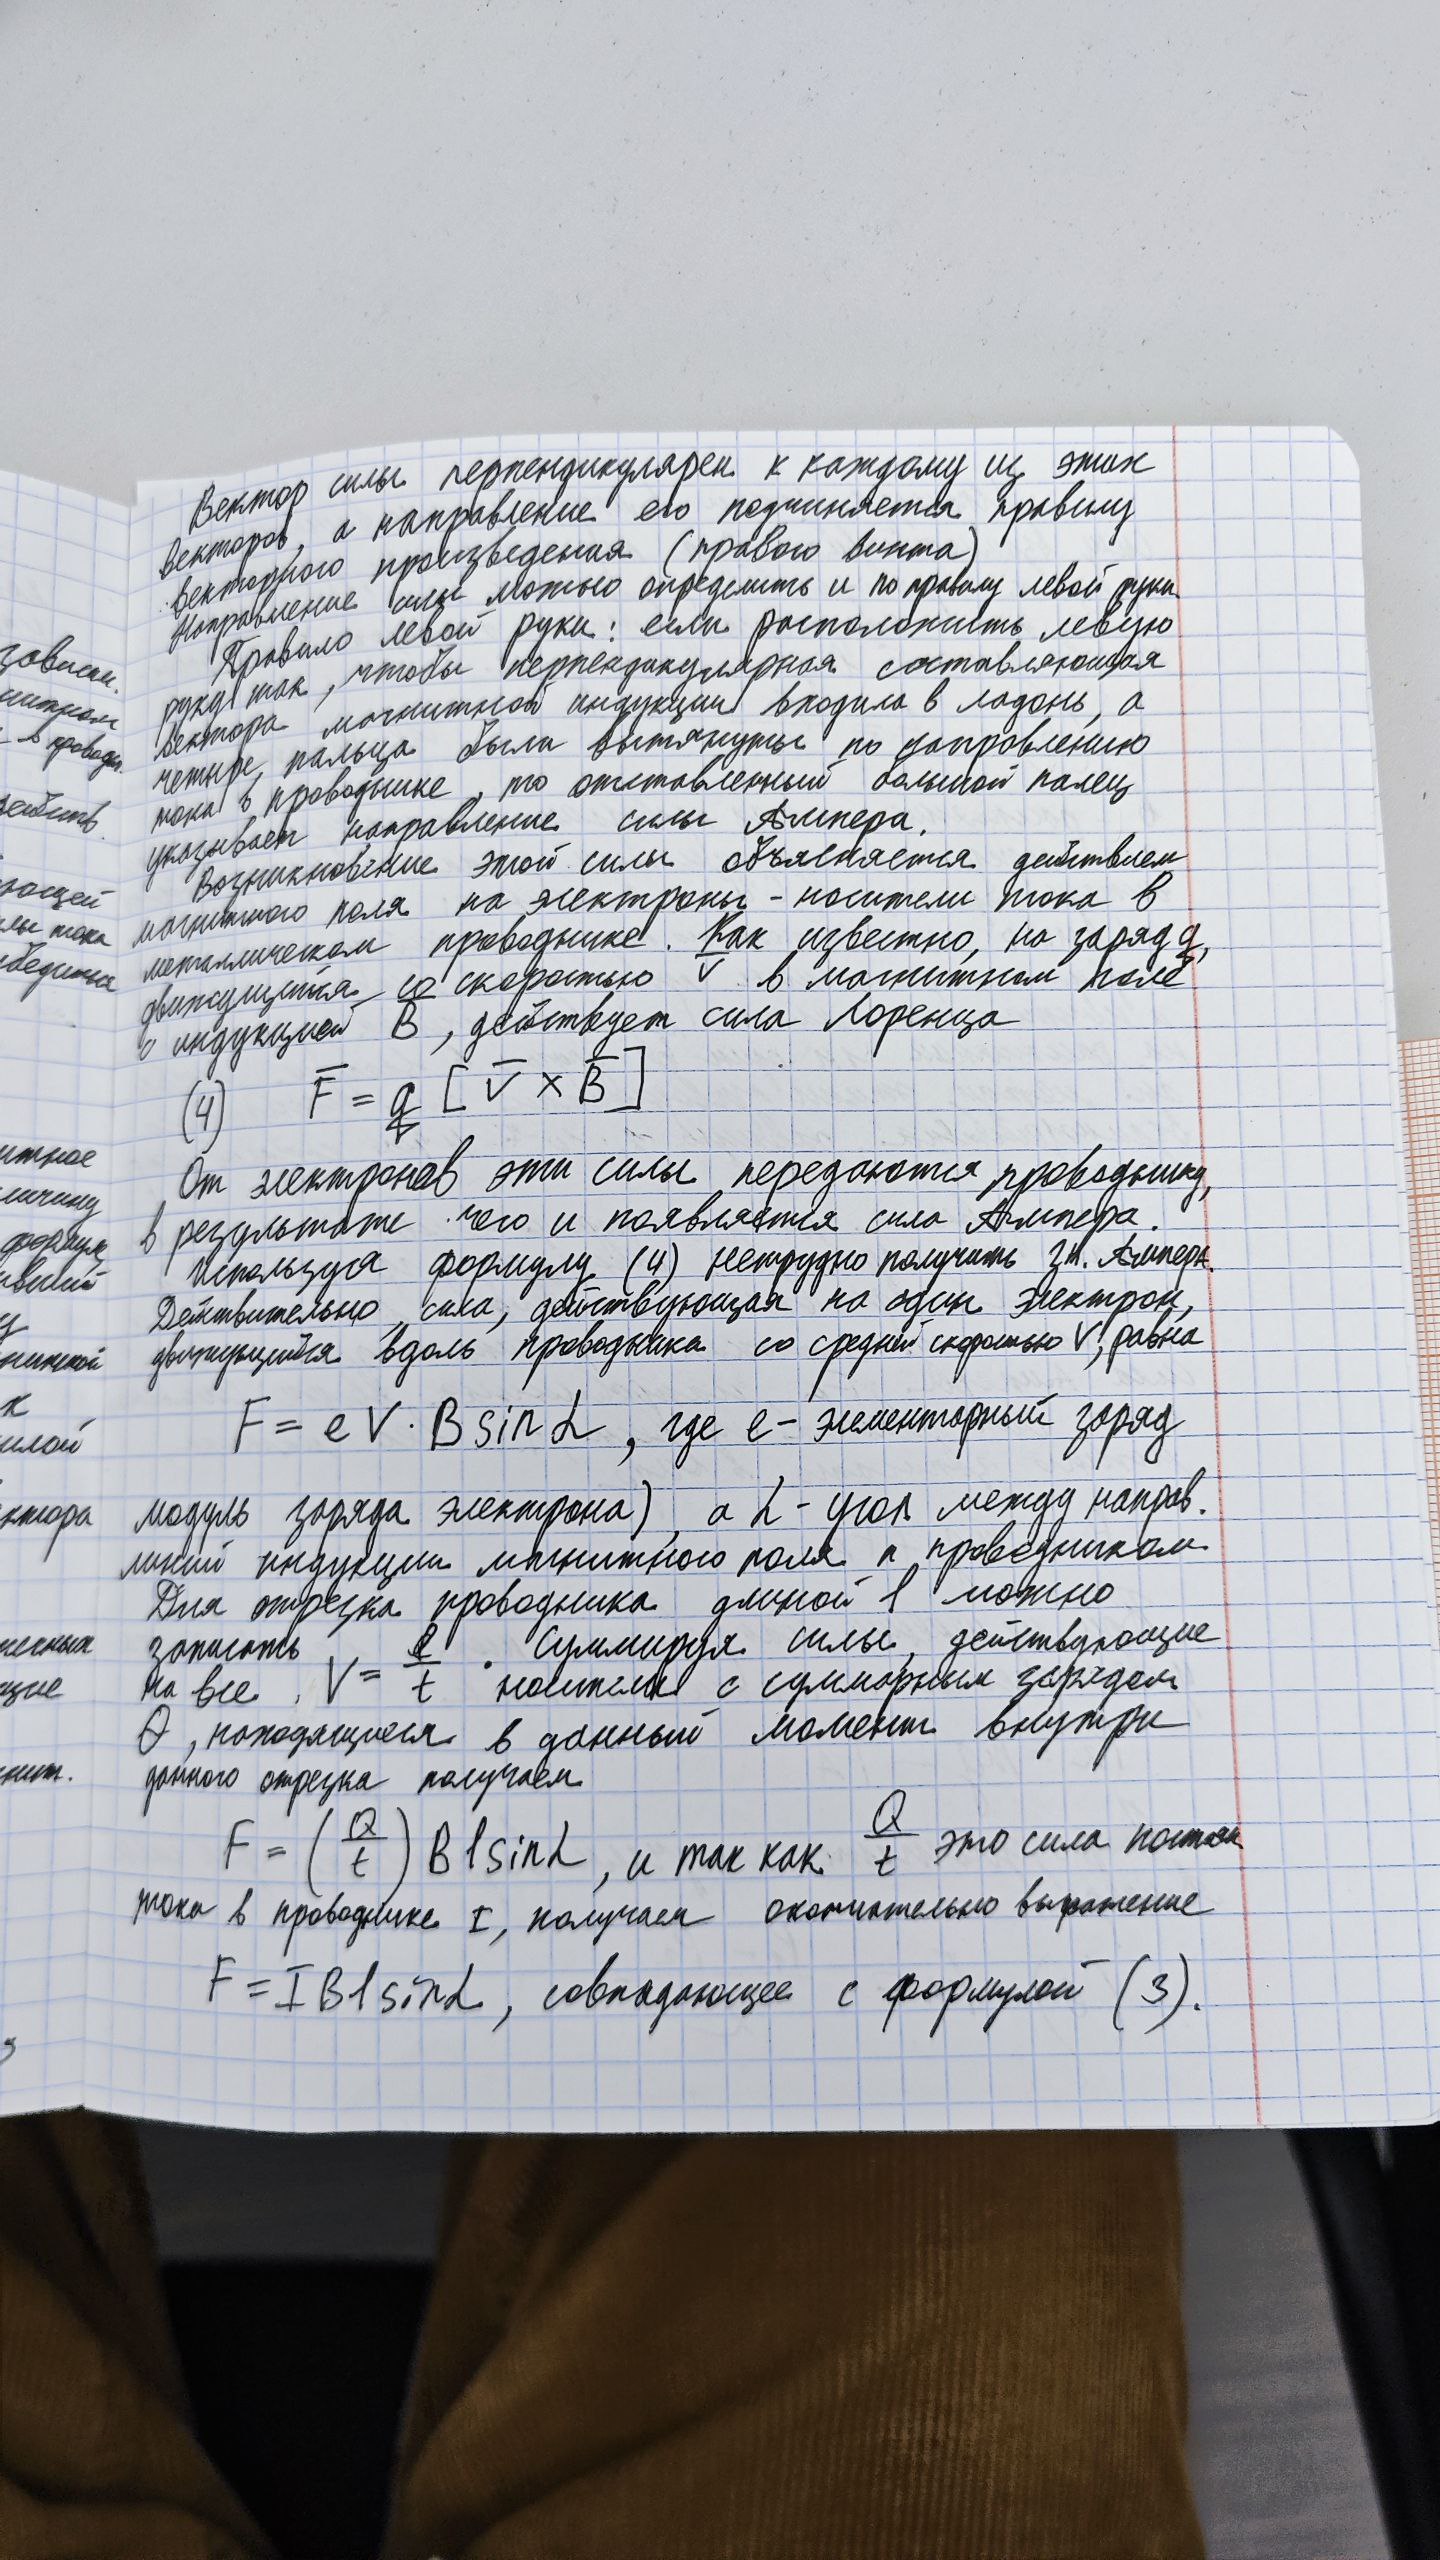 Вектор силы перпендикулярен к каждому из этих
векторов, а направление его подчиняется правилу
векторного произведения (правого винта)
Направление силы можно определить и по правилу левой руки
Правило левой руки: если расположить левую
руку так, чтобы перпендикулярная составляющая
вектора магнитной индукции входила в ладонь, а
четыре пальца были вытянуты по направлению
тока в проводнике, то отставленный большой палец
указывает направление силы Ампера.
Возникновение этой силы объясняется действием
магнитного поля на электроны - носители тока в
металлическом проводнике. Как известно, на заряд q,
движущийся со скоростью v̅ в магнитном поле
с индукцией B̅, действует сила Лоренца
(4) F̅ = q [V̅ × B̅]
От электронов эти силы передаются проводнику,
в результате чего и появляется сила Ампера.
Используя формулу (4) нетрудно получить зк. Ампера.
Действительно, сила, действующая на один электрон,
движущийся вдоль проводника со средней скоростью V, равна
F = eV · B sin α, где e - элементарный заряд
модуль заряда электрона), а α - угол между направ.
линий индукции магнитного поля и проводником
Для отрезка проводника длиной l можно
записать V = l/t. Суммируя силы, действующие
на все носители с суммарным зарядом
Q, находящиеся в данный момент внутри
данного отрезка получаем
F = (Q/t) B l sin α, и так как Q/t это сила
тока в проводнике I, получаем окончательно выражение
F = I B l sin α, совпадающее с формулой (3).
зависим.
в провод
ающей
лы тока
итное
личину
формул
к
илой
ктора
щие